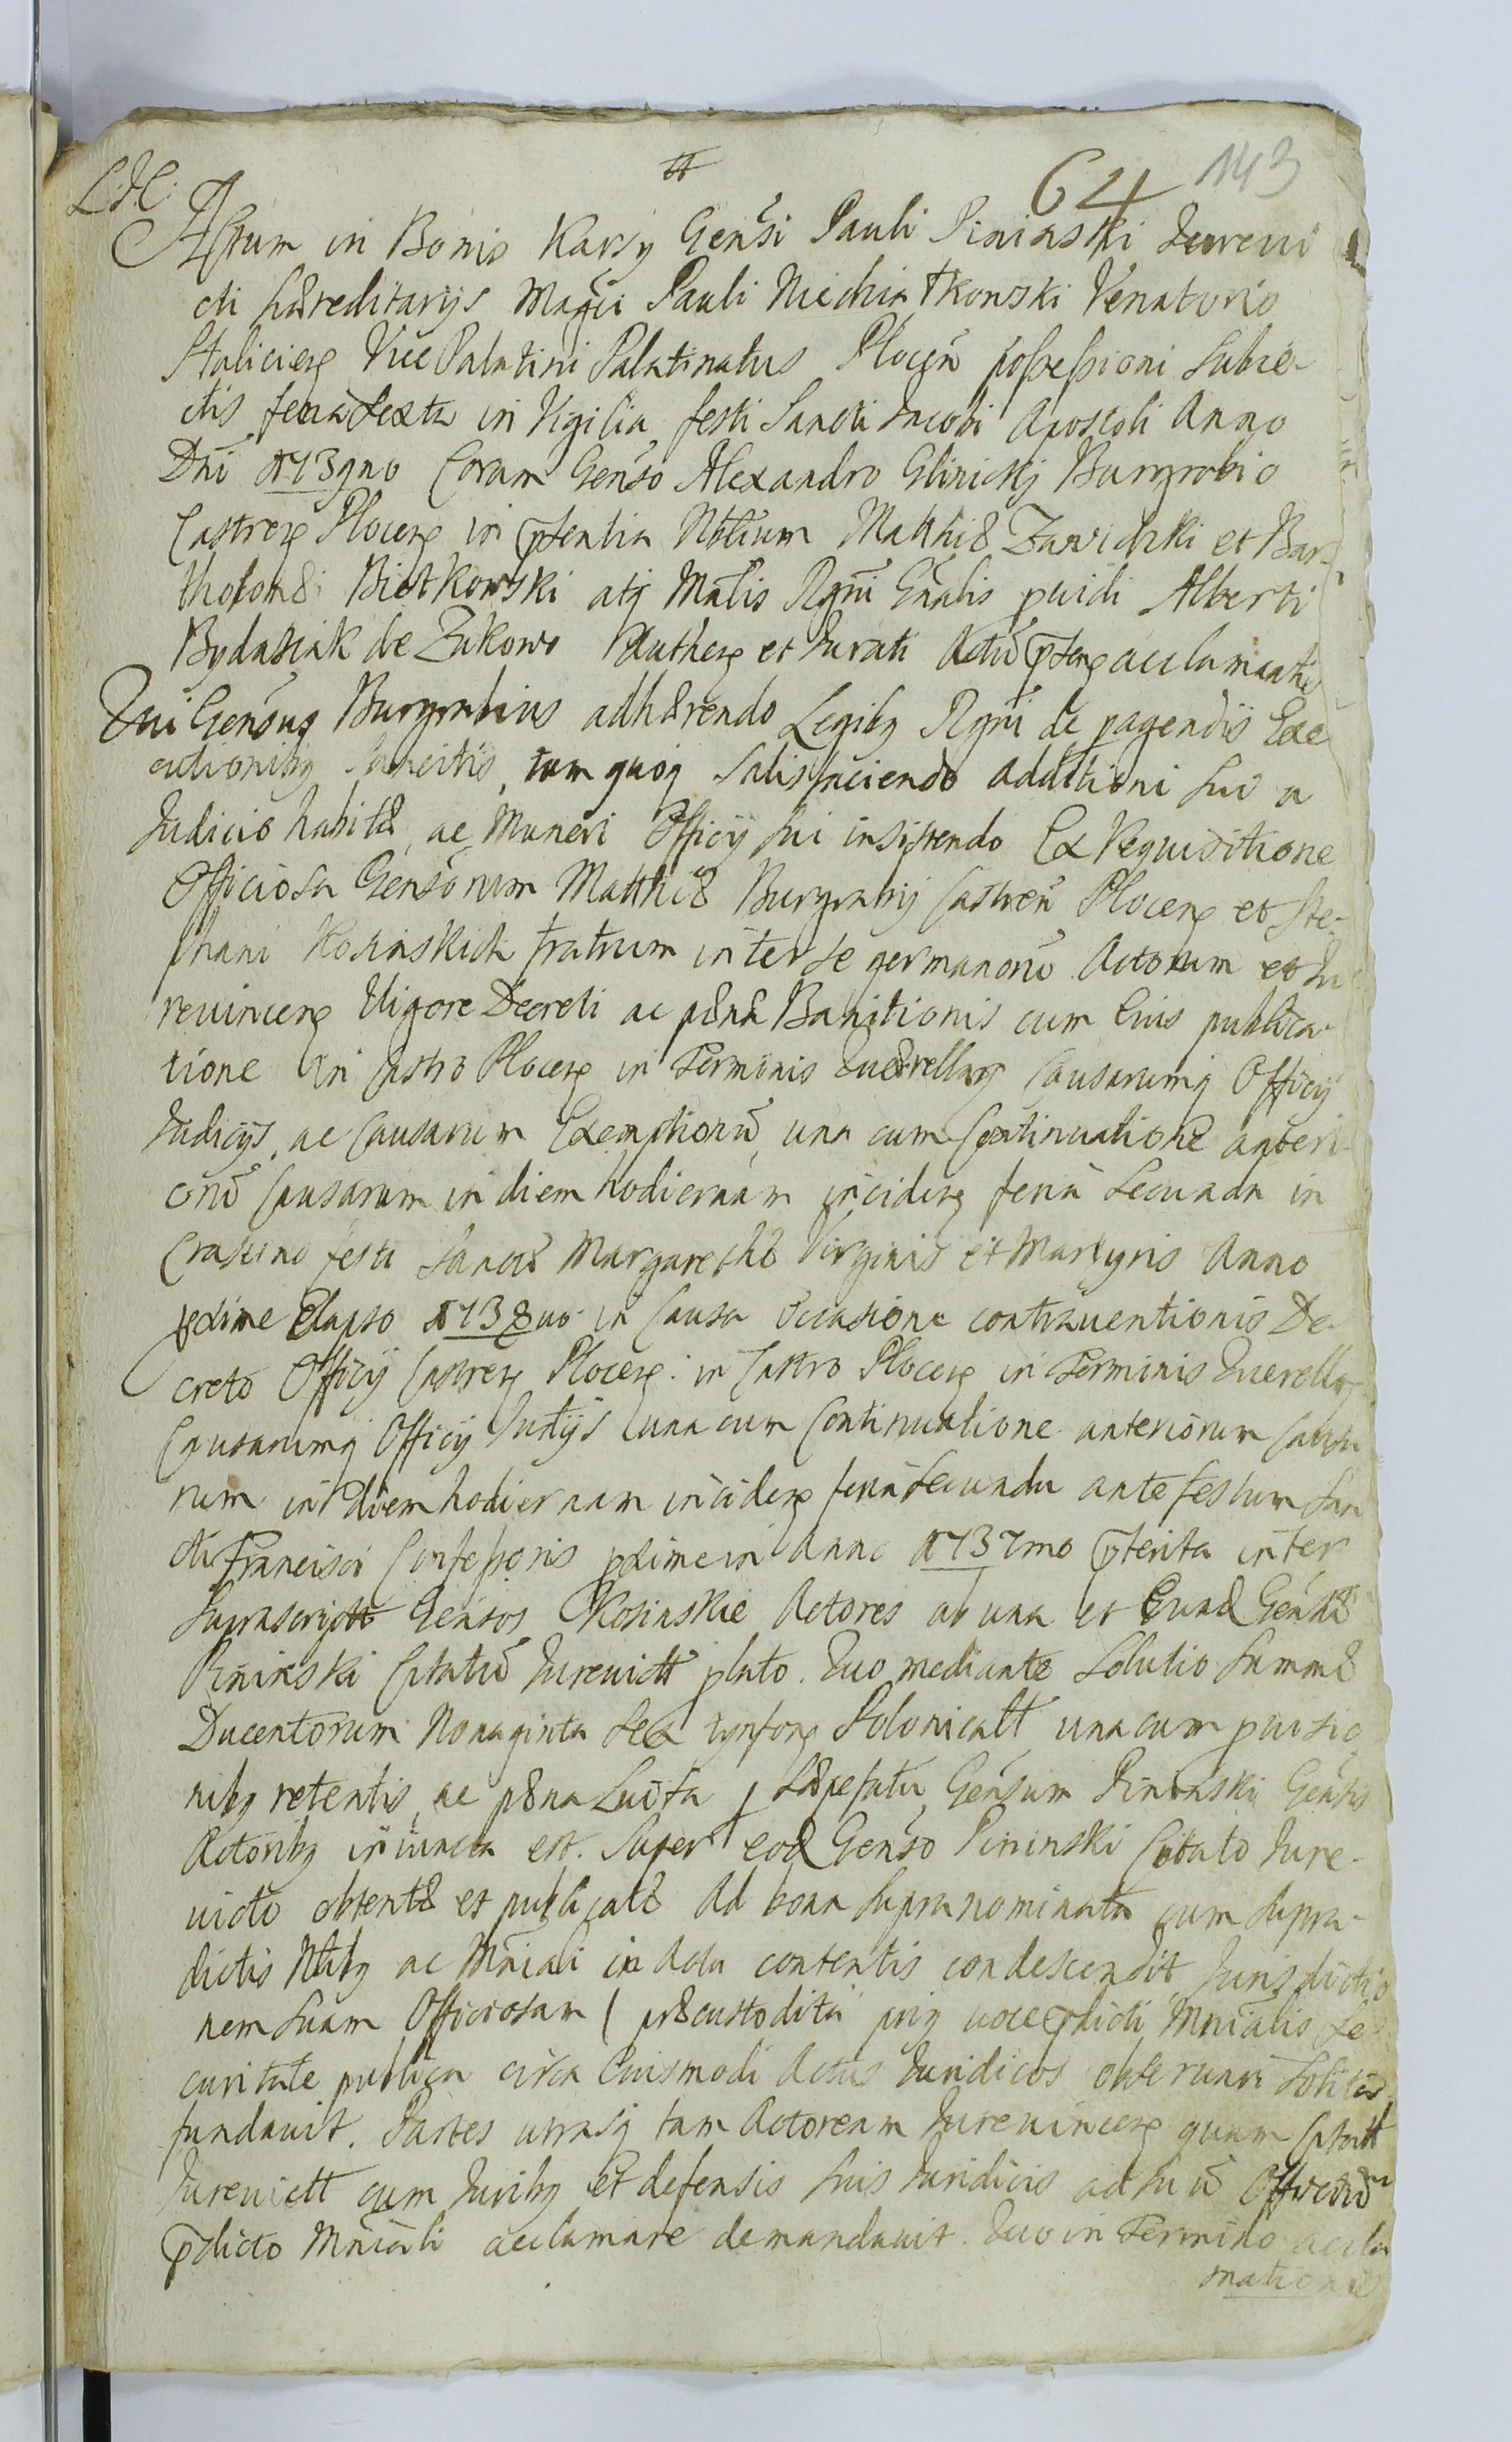 64 143
L: H:
Actum in Bonis Karsy Gensi Pauli Pininski Jurevi
cti haereditarijs Magci Pauli Niedzia tkowski Venatoris
Halicien Vice Palatini Palatinatus Plocen possessioni subie-
ctis feria sexta in Vigilia festi Sancti Jacobi Apostoli Anno
Dni 1739no Coram Genso Alexandro Glinickj Burgrabio
Castren Plocen in pntentia Nbtium Matthiae Zawidzki et Bar-
tholomaei Biotkowski atq Mnlis Rgni Gnalis pvidi Alberti
Bydasiak de Zukowo Authen et Jurati Actu pnten acclamantis
Qui Gensus Burgrabius adhaerendo Legibq Rgni de pagendis Exe
cutionibq sancitis, tam quoq satisfaciendo additioni sui a
Judicio habitae, ac Muneri Officij sui insistendo Ex Requisitione
Officiosa Gensorum Matthiae Burgrabij Castren Plocen et Ste-
phani Kosinskich fratrum inter se germanorū Actorum et Ju
revincen Vigore Decreti ac paenae Banitionis cum Eius publica-
tione in Castro Plocen in Terminis Quaerellarq Causarumq Officij
Judicijs, ac Causarum Exemptionū, una cum Continuatione anteri-
orū Causarum in diem hodiernam inciden feria Secunda in
Crastino festi Sanctae Margarethae Virginis et Martyris Anno
pxime Elapso 1738vo in Causa occasione contraventionis De
creto Officij Castren Plocen: in Castro Plocen in Terminis Querellarq
Causarumq Officij Judijs una cum Continuatione anteriorum Causa
rum in Diem hodiernam inciden feria secunda ante festum San
cti Francisci Confessoris pxime in Anno 1737mo pterita inter
Suprascriptt Gensos Kosinskie Actores ab una et Eund Gensū
Pininski Citatū Jurevictt plato. Quo mediante Solutio Summae
Ducentorum Nonaginta Sex tynfon Polonicatt una cum pvisio
nibq retentis, ac paena Luita p saepefatū Gensum Pininski Gensis
Actoribq iniuncta est. Super eod Genso Pininski Citato Jure-
victo obtentae et publicatae Ad bona supra nominata cum supra-
dictis Nbibq ac Mniali in Actu contentis condescendit, Jurisdictio
nem suam Officiosam (praecustodita priq voce pdicti Mnialis se
curitate publica circa Eiusmodi Actus Juridicos observari solita
fundavit. Partes utrasq tam Actoream Jurevincen quam Citatt
Jurevictt cum Juribq et defensis suis Juridicis ad suū Officiū
pdicto Mniali acclamare demandavit. Quo in Termino accla
mationis